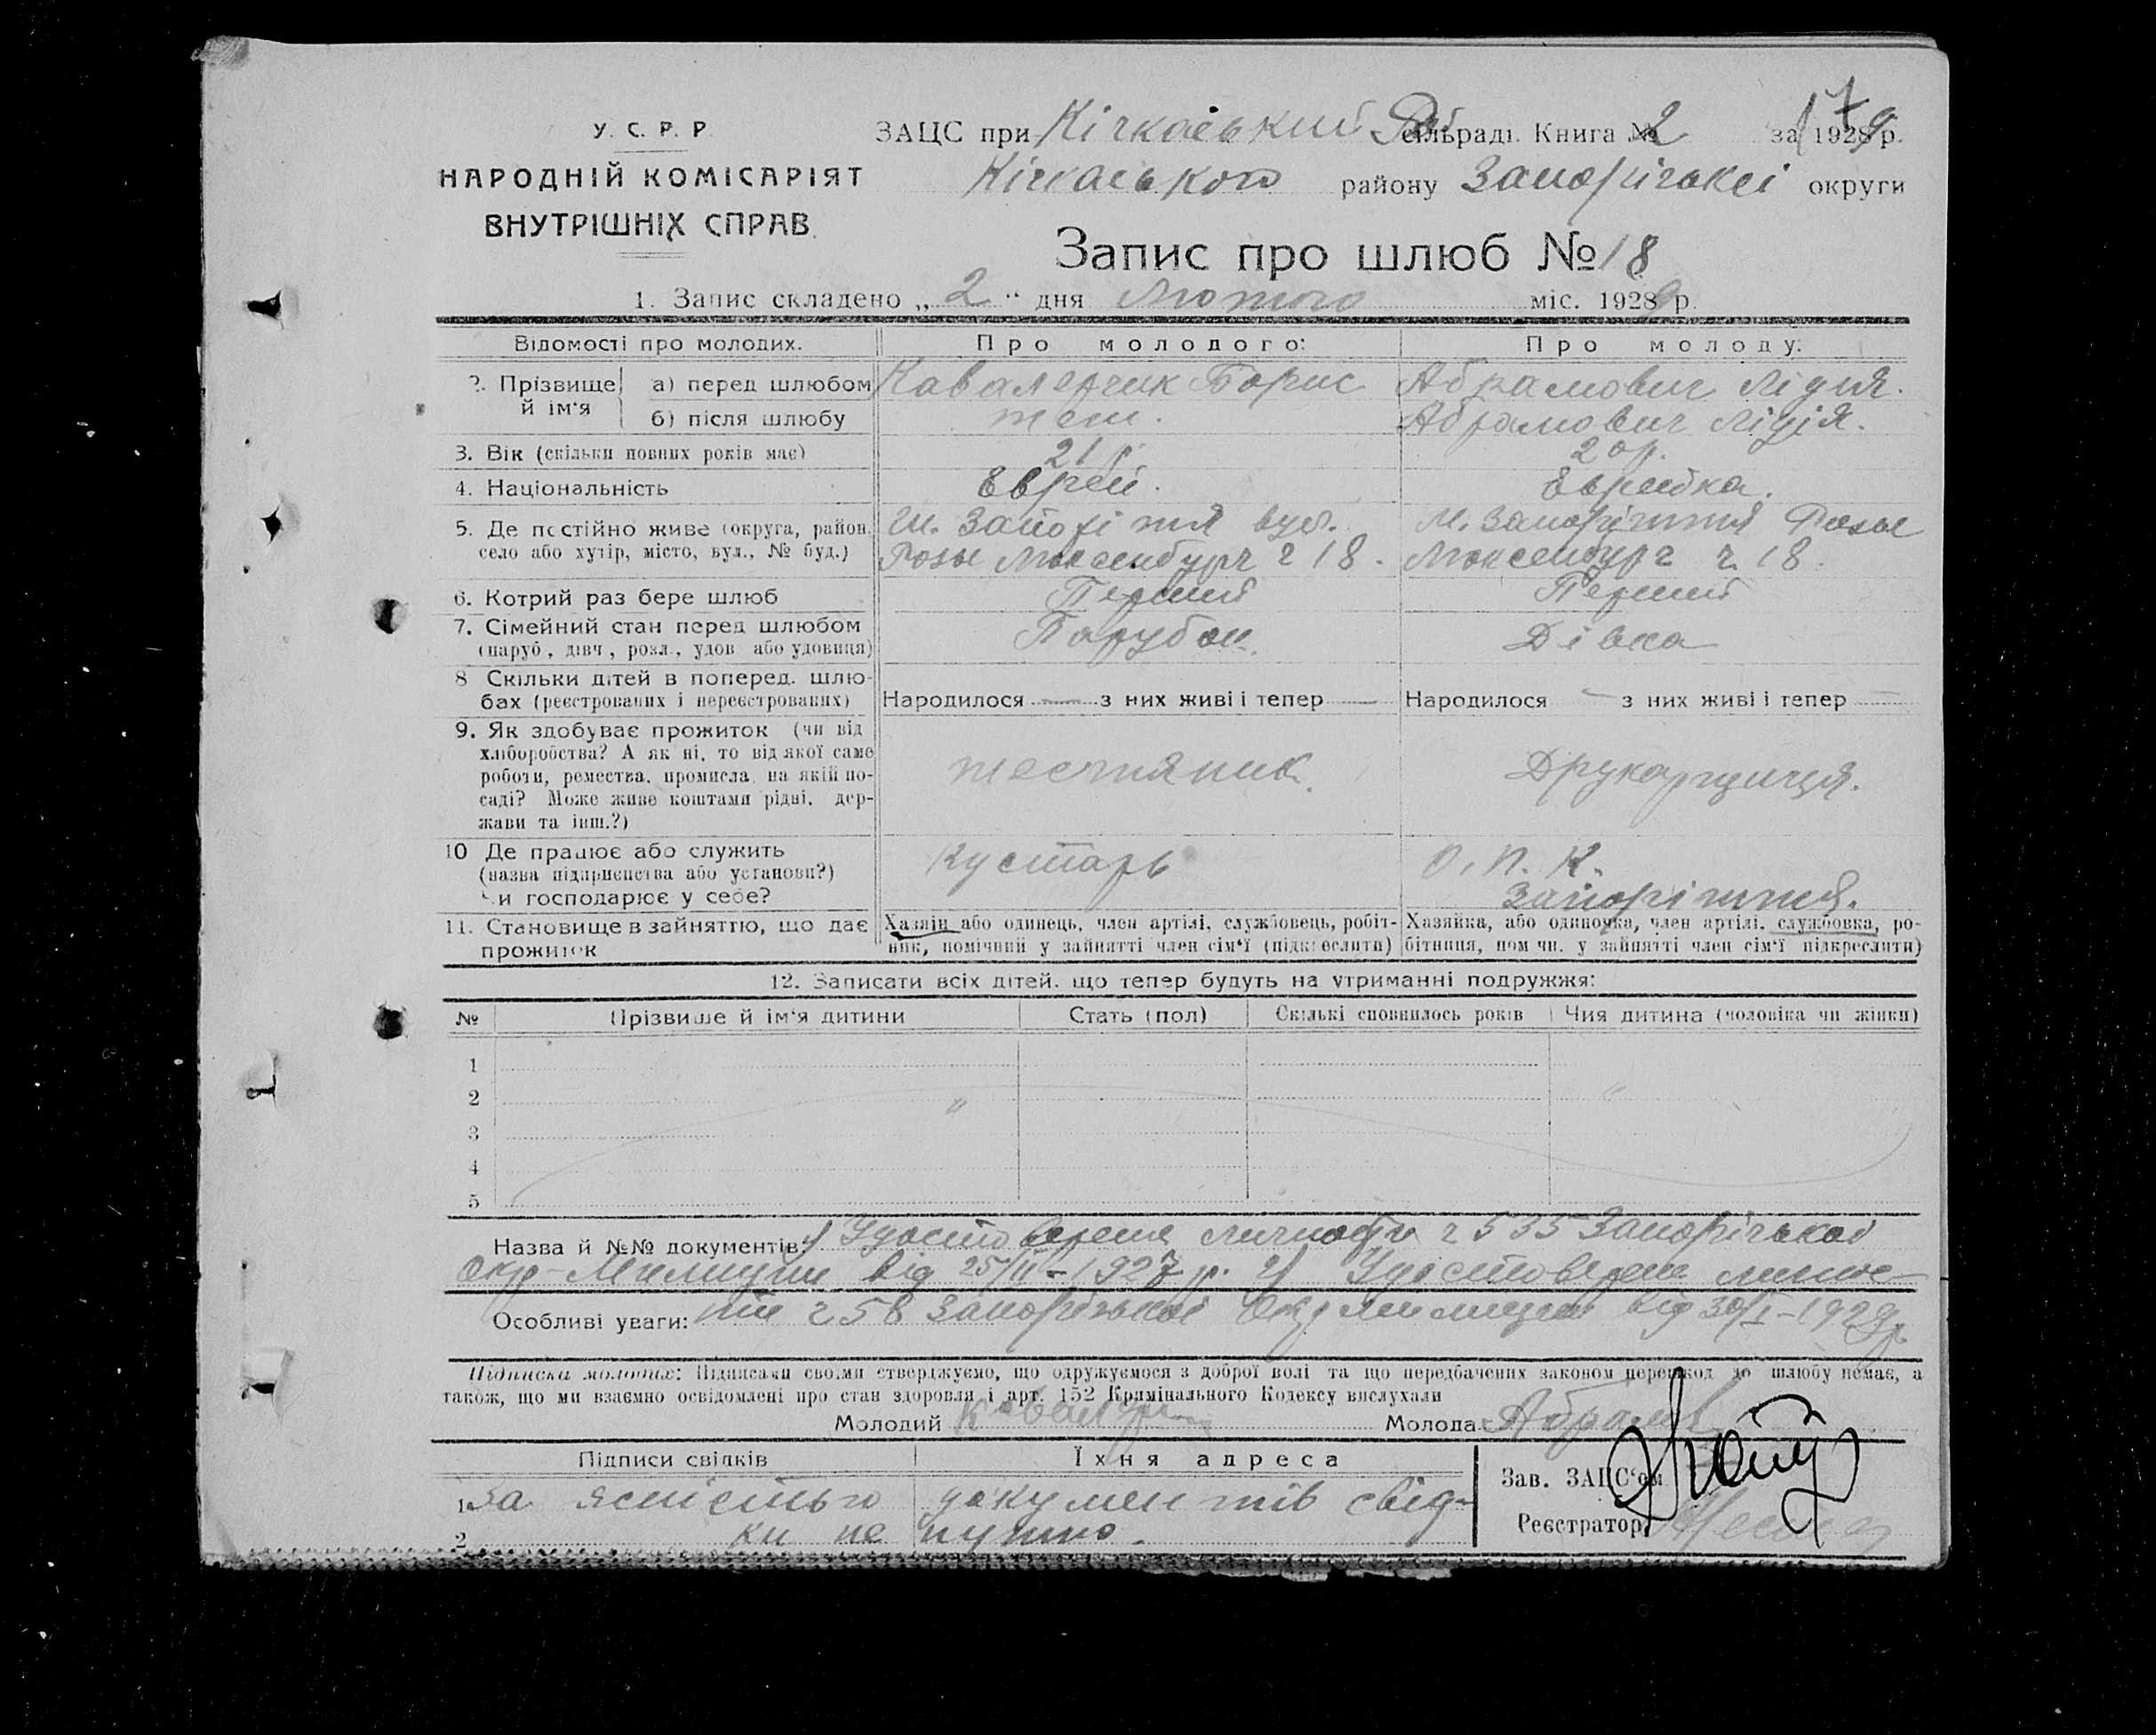 У. С. Р. Р.
НАРОДНІЙ КОМІСАРІЯТ
ВНУТРІШНІХ СПРАВ.
179
ЗАЦС при Кічкаський сільраді. Книга № 2 за 1929 р.
Кічкаського району Запорізької округи
Запис про шлюб № 18
1. Запис складено „ 2 “ дня Лютого міс. 1929 р.
Відомості про молодих. Про молодого: Про молоду:
2. Прізвище й ім'я а) перед шлюбом Кавалерчик Борис Абрамович Лідия.
б) після шлюбу теж. Абрамович Лідія.
3. Вік (скільки повних років має) 21 р. 20 р.
4. Національність Еврей. Еврейка.
5. Де постійно живе (округа, район, М. Запоріжжя вул. М. Запоріжжя Розы
село або хутір, місто, вул., № буд.) Розы Люксембург ч 18. Люксембург ч. 18.
6. Котрий раз бере шлюб Перший Перший
7. Сімейний стан перед шлюбом Парубок. Дівка
(паруб., дівч., розл., удов. або удовиця)
8 Скільки дітей в поперед. шлю-
бах (реєстрованих і нереєстрованих) Народилося — з них живі і тепер — Народилося — з них живі і тепер —
9. Як здобуває прожиток (чи від
хліборобства? А як ні, то від якої саме
роботи, ремества, промисла, на якій по- жестяник. Друкарщиця.
саді? Може живе коштами рідні, дер-
жави та інш.?)
10 Де працює або служить Кустарь О. П. К.
(назва підприємства або установи?) Запоріжжя.
Чи господарює у себе?
11. Становище в зайняттю, що дає Хазяїн або одинець, член артілі, службовець, робіт- Хазяйка, або одиночка, член артілі, службовка, ро-
прожиток ник, помічний у зайнятті член сім'ї (підкреслити) бітниця, помічн. у зайнятті член сім'ї підкреслити)
12. Записати всіх дітей, що тепер будуть на утриманні подружжя:
№ Прізвище й ім'я дитини Стать (пол) Скількі сповнилось років Чия дитина (чоловіка чи жінки)
1
2 " "
3
4
5
Назва й №№ документів: 1) Удостоверение личности ч 535 Запорізької
Окр. Милиции від 25/II-1927 р. 2) Удостоверение личнос-
Особливі уваги: ти ч 58 Запорізької Окр милиции від 30/I-1929 р.
Підписка молодих: Підписами своїми стверджуємо, що одружуємося з доброї волі та що передбачених законом перешкод до шлюбу немає, а
також, що ми взаємно освідомлені про стан здоровля і арт. 152 Крамінального Кодексу вислухали
Молодий Молода
Підписи свідків Їхня адреса
1. За ясністью документів свід-
2. ки не нужно.
Зав. ЗАЦС'ом
Реєстратор